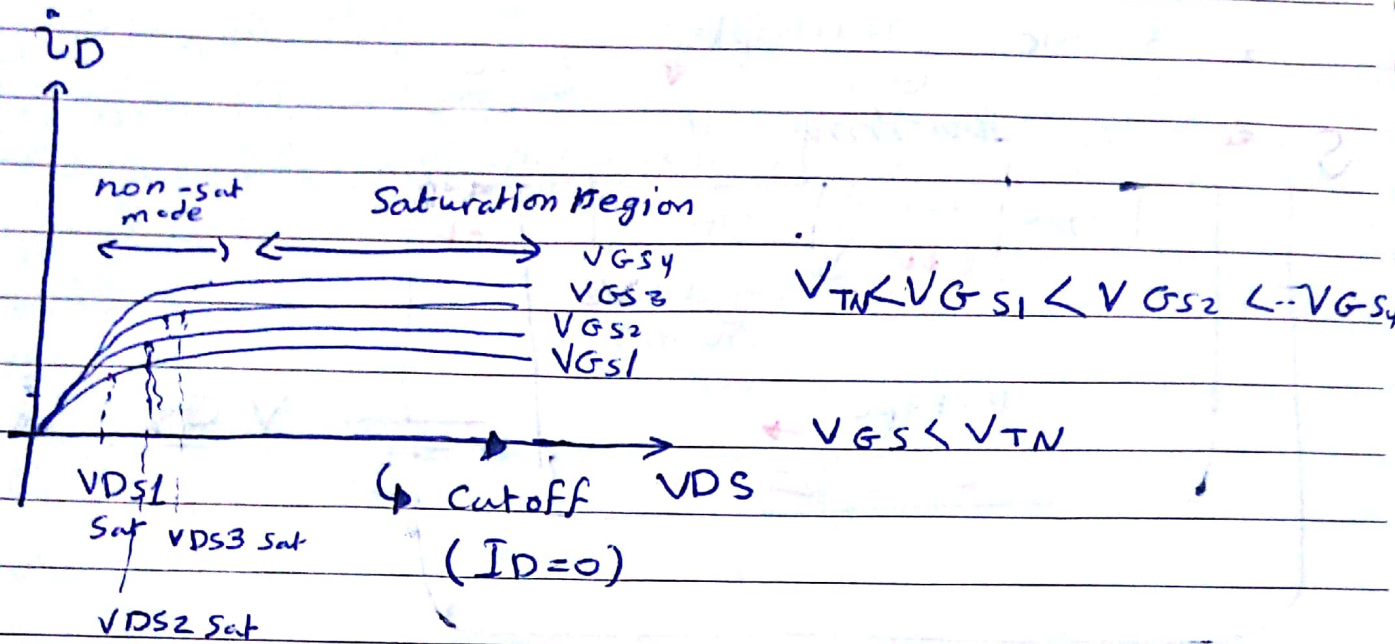 iD
non-sat
mode
Saturation Region
VGS4
VGS3
VGS2
VGS1
VTN<VGS1 < VGS2 <--VGS4
VGS < VTN
VDS
↳ Cutoff
(ID=0)
VDS1
Sat
VDS3 Sat
VDS2 Sat